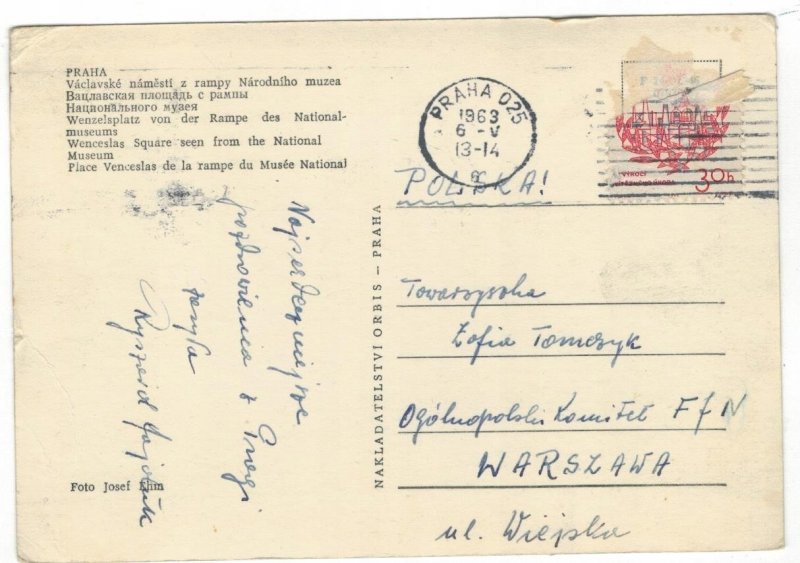 PRAHA
Václavské náměstí z rampy Národního muzea
Вацлавская площадь с рампы
Национального музея
Wenzelsplatz von der Rampe des National-
museums
Wenceslas Square seen from the National
Museum
Place Venceslas de la rampe du Musée National
PRAHA 025
1963
6 - V
13-14
POLSKA!
30h
VÝROČÍ
Najserdeczniejsze
pozdrowienia z Pragi
Ryszard
Foto Josef Ehm
NAKLADATELSTVÍ ORBIS – PRAHA
Towarzyszka
Zofia Tomczyk
Ogólnopolski Komitet FJN
WARSZAWA
ul. Wiejska